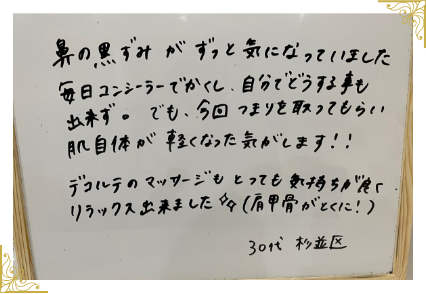 鼻の黒ずみ が ずっと 気になっていました
毎日コンシーラーでかくし、自分でどうする事も
出来ず。 でも、今回 つまりを取ってもらい
肌自体が 軽くなった気がします!!
デコルテの マッサージも とっても 気持ちが良く
リラックス出来ました (肩甲骨がとくに!)
30代 杉並区